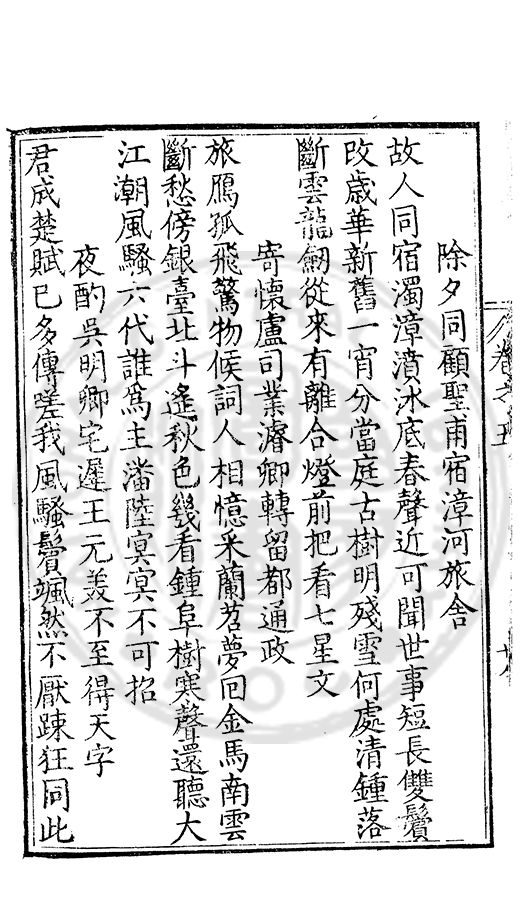 除夕同顧聖甫宿漳河旅舍
故人同宿濁漳濆冰底春聲近可聞世事短長雙鬢
改歲華新舊一宵分當庭古樹明殘雪何處清鍾落
斷雲龍劒從來有離合燈前把看七星文
寄懷盧司業濬卿轉留都通政
旅鴈孤飛驚物候詞人相憶采蘭苕夢回金馬南雲
斷愁傍銀臺北斗遙秋色幾看鍾阜樹寒聲還聽大
江潮風騷六代誰爲主潘陸冥冥不可招
夜酌吳明卿宅遲王元美不至得天字
君成楚賦已多傳嗟我風騷鬢颯然不厭踈狂同此
卷之五